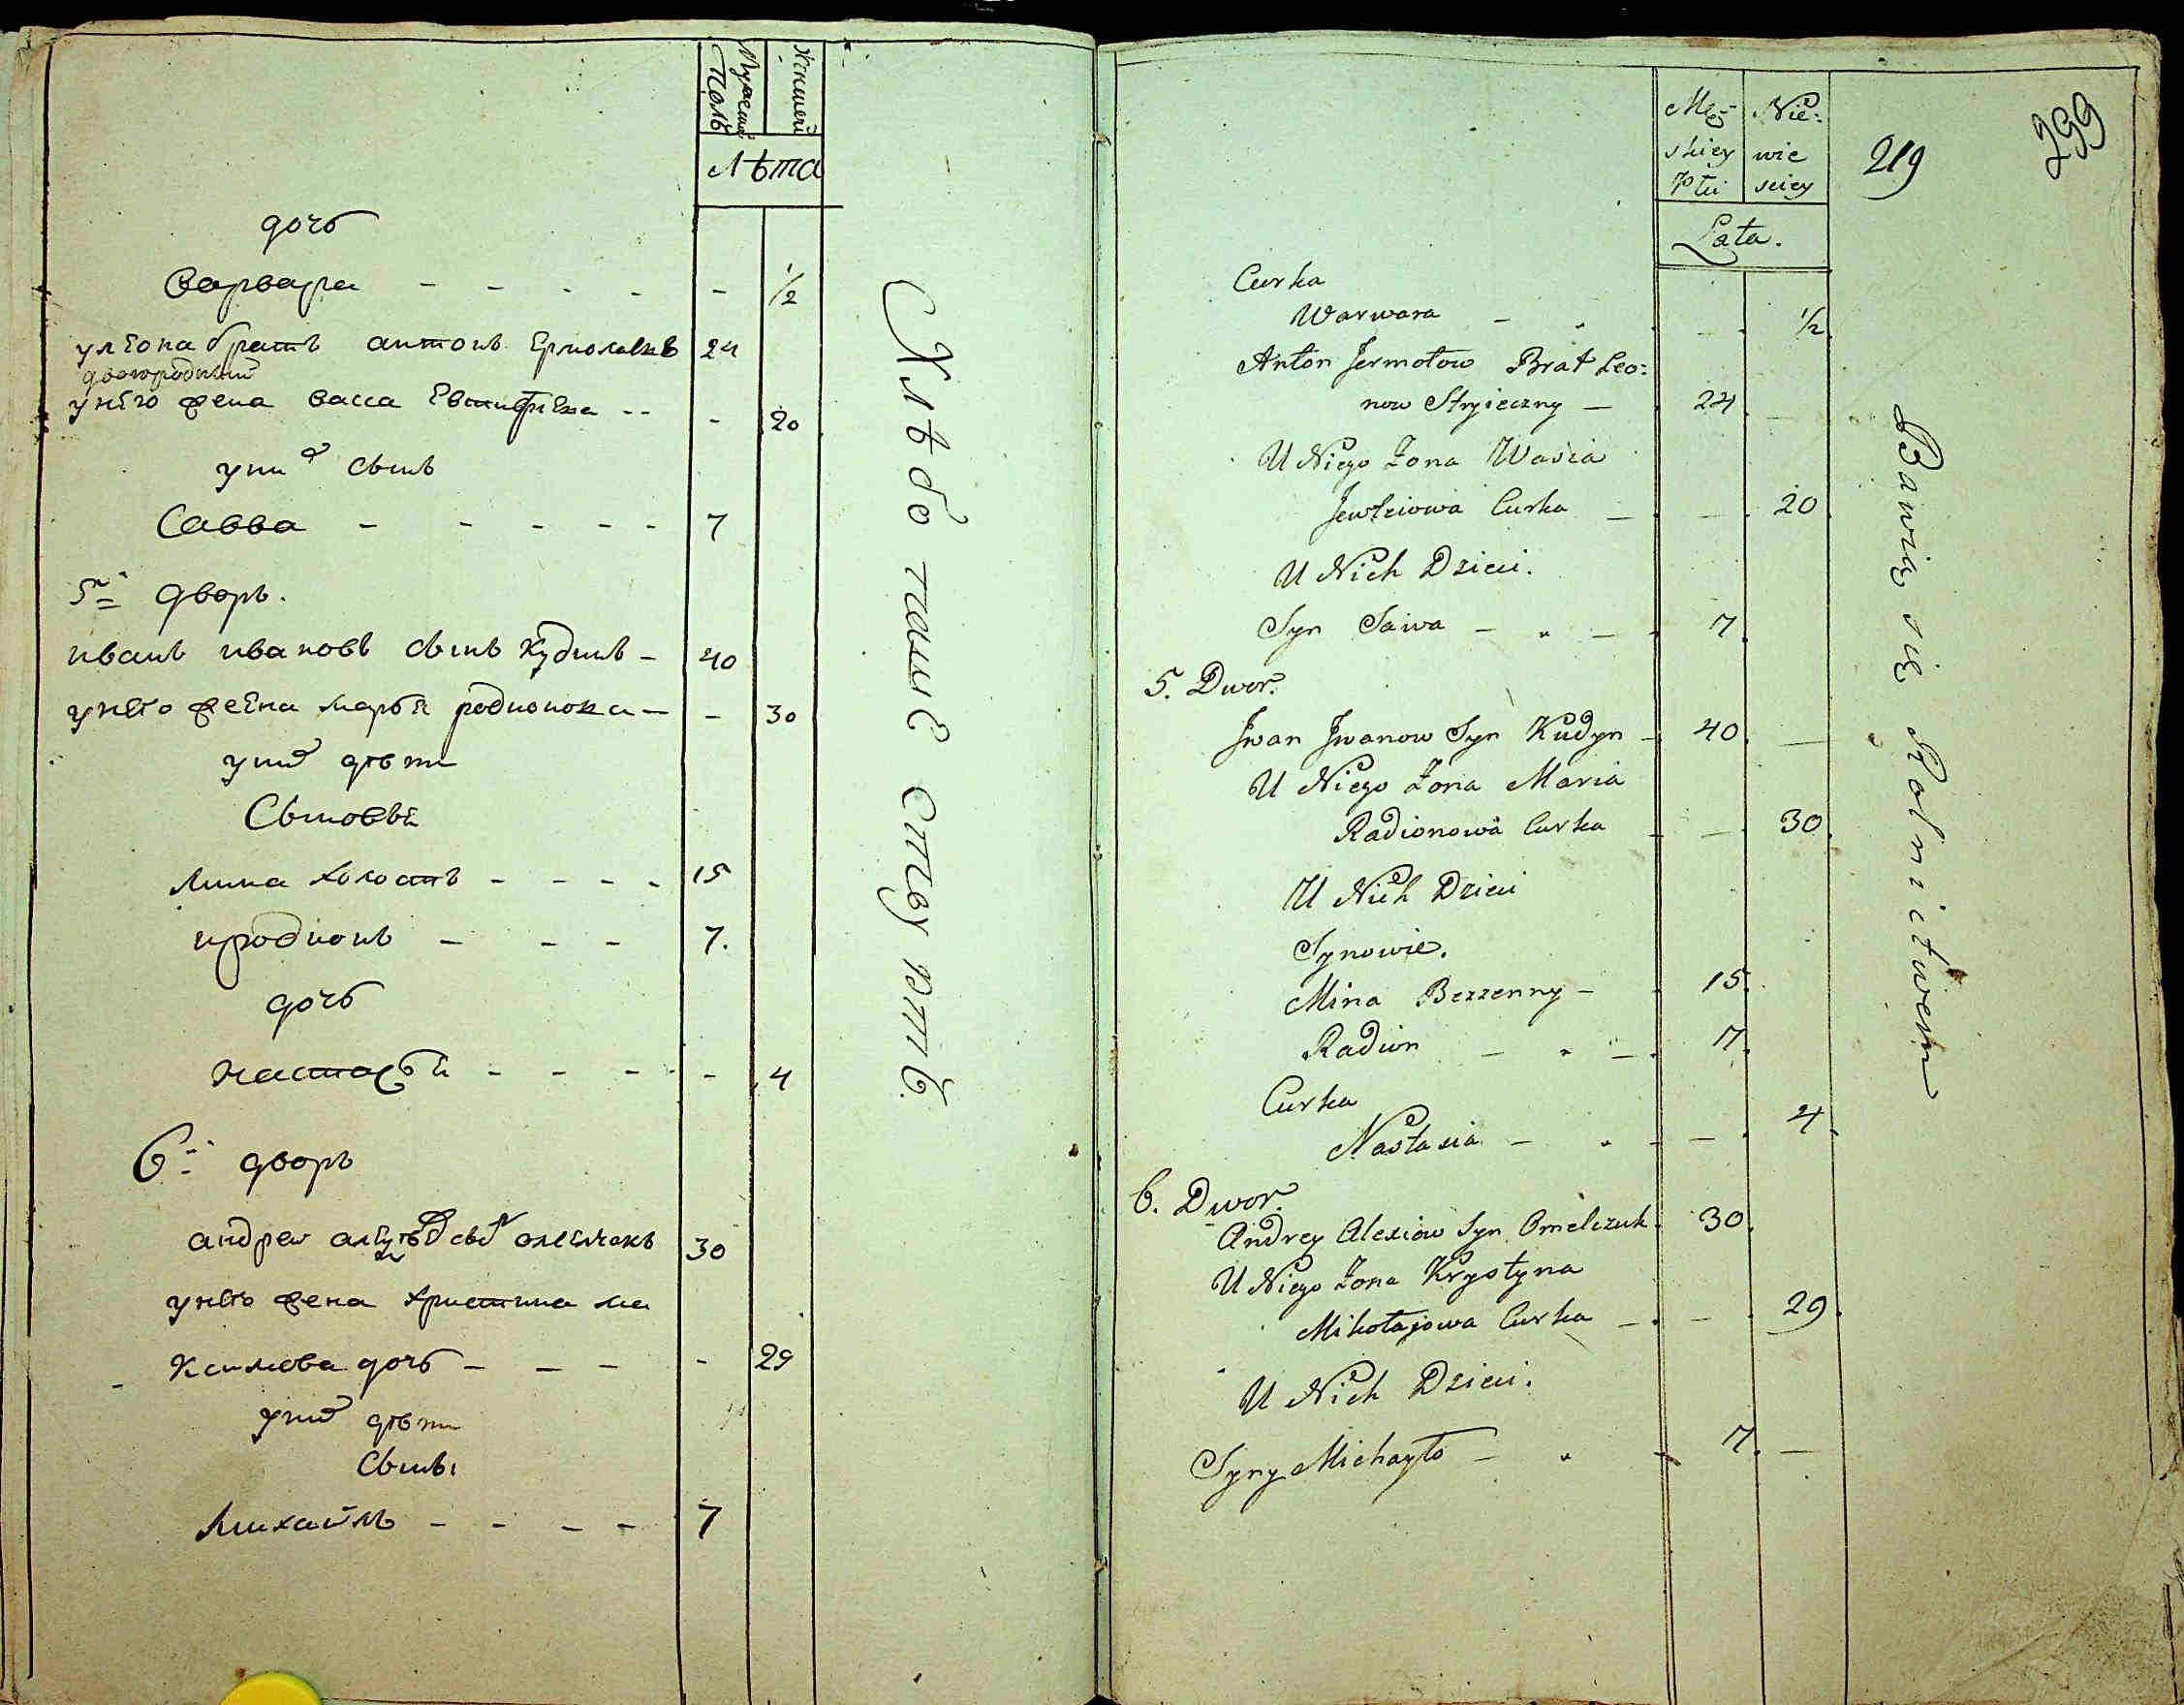 Мужеска Полъ
Женшей
Лѣта
дочь
Варвара - - - - - 1/2
у леона братъ антонъ Ермолаевъ 24
двоюродный
у него жена васса Евтифіева - - - 20
у них сынъ
Савва - - - - - 7
5й дворъ.
иванъ ивановъ сынъ Кудинъ - 40
у него жена марья родионова - - 30
у них дѣти
Сыновья
мина холостъ - - - - 15
иродионъ - - - 7.
дочь
настасья - - - - - 4
6й дворъ
андреи сын омелчокъ 30
у него жена христина ма
ксимова дочь - - - - 29
у них дѣти
Сыны
михайлъ - - - - 7
Хлѣбопашествуютъ.
299
219
Męz- Nie:
skiey wie
Płci sciey
Lata.
Curka
Warwara - - - 1/2
Anton Jermołow Brat Leo:
now Stryieczny - 24 -
U Niego Zona Wasia
Jewtziowa Curka - - 20
U Nich Dzieci.
Syn Sawa - " - 7
5. Dwor.
Jwan Jwanow Syn Kudyn - 40 -
U Niego Zona Maria
Radionowa Curka - - 30
U Nich Dzieci
Synowie.
Mina Bezzenny - 15
Radion - " - 7
Curka
Nastasia - " - - 4
6. Dwor.
Andrey Alexiow Syn Omelczuk 30
U Niego Zona Krystyna
Mikołajowa Curka - - 29
U Nich Dzieci.
Syny Michayło - " - 7 -
Bawią się Rolnictwem